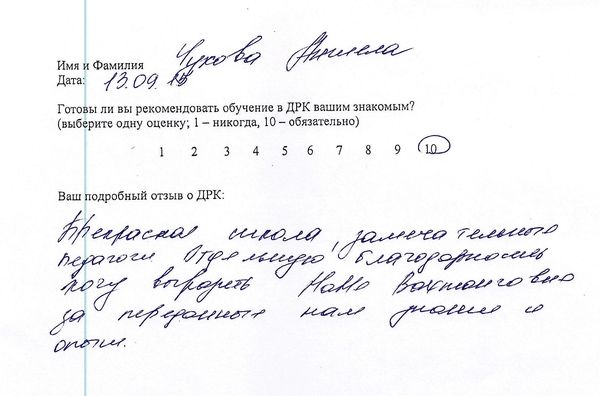 Имя и Фамилия Чухова Анжела
Дата: 13.09.15
Готовы ли вы рекомендовать обучение в ДРК вашим знакомым?
(выберите одну оценку; 1 – никогда, 10 – обязательно)
1 2 3 4 5 6 7 8 9 10
Ваш подробный отзыв о ДРК:
Прекрасная школа, замечательные
педагоги. Отдельную благодарность
хочу выразить Вахтанговне
за переданные нам знания и
опыт.